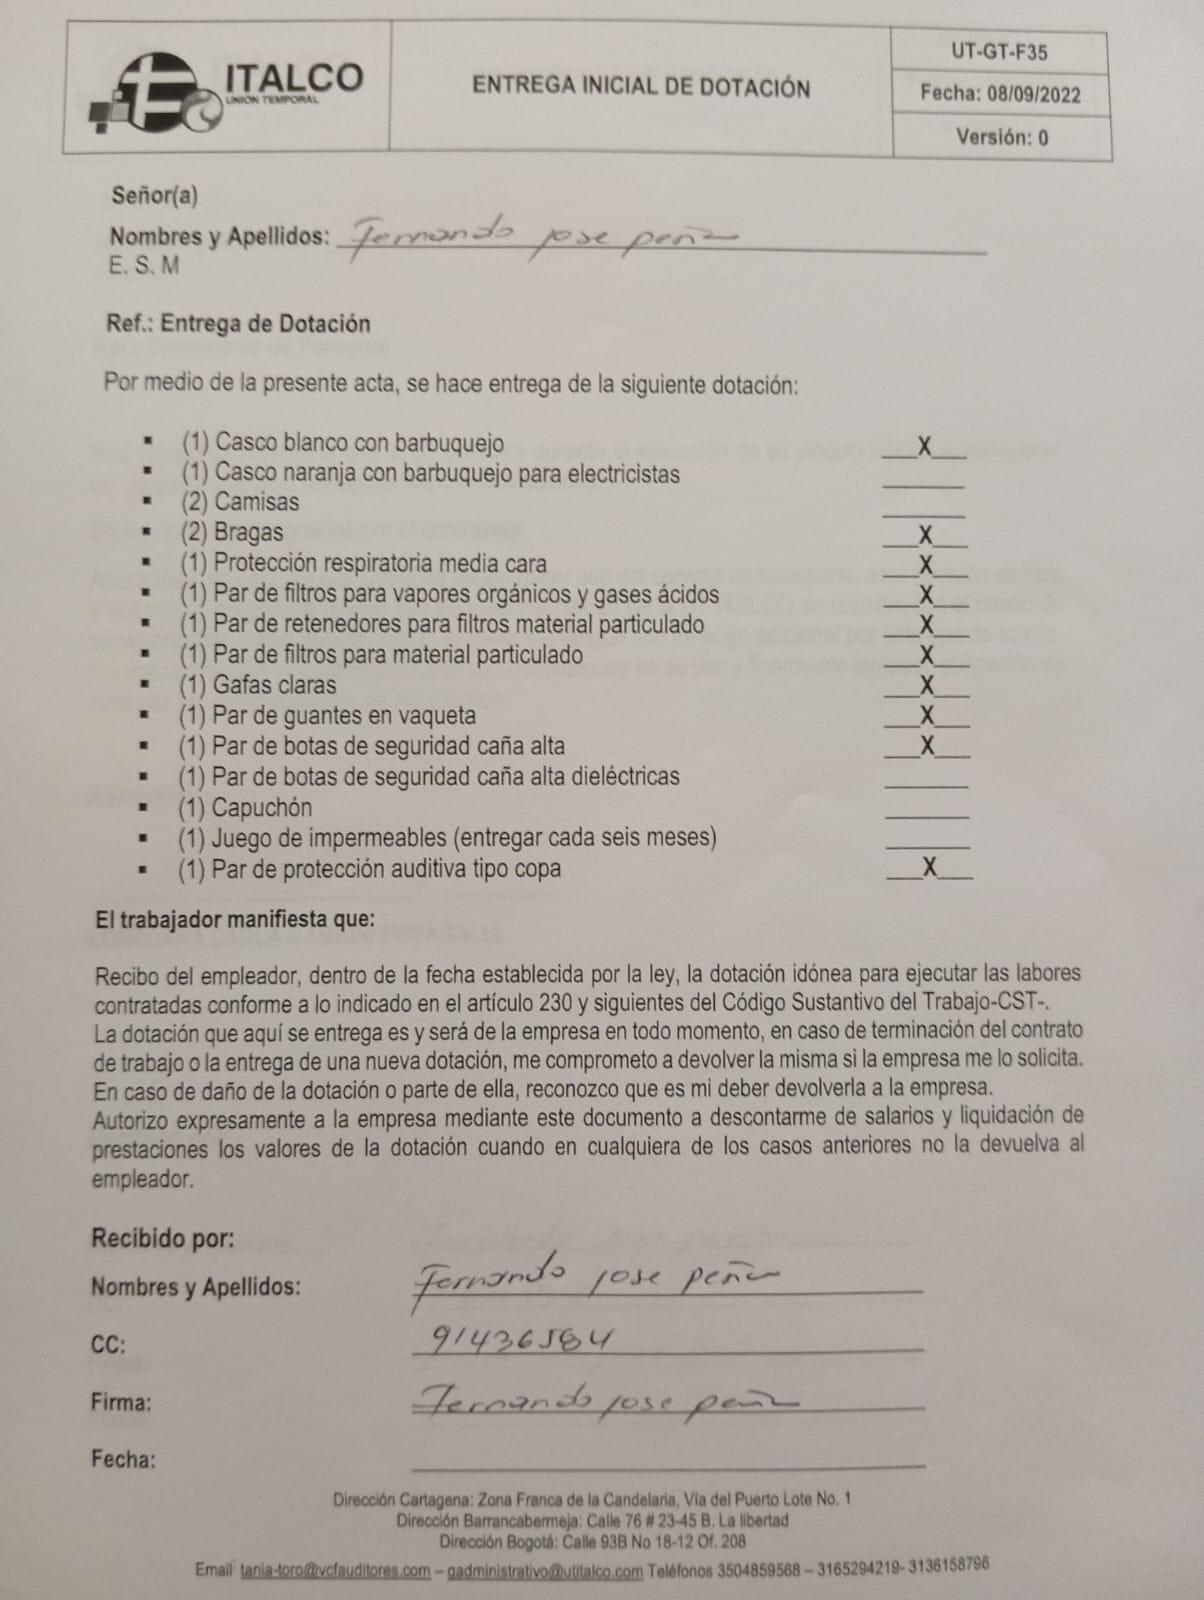 ITALCO
UNIÓN TEMPORAL
ENTREGA INICIAL DE DOTACIÓN
UT-GT-F35
Fecha: 08/09/2022
Versión: 0
Señor(a)
Nombres y Apellidos: Fernando jose peña
E. S. M
Ref.: Entrega de Dotación
Por medio de la presente acta, se hace entrega de la siguiente dotación:
▪ (1) Casco blanco con barbuquejo ___X___
▪ (1) Casco naranja con barbuquejo para electricistas _______
▪ (2) Camisas _______
▪ (2) Bragas ___X___
▪ (1) Protección respiratoria media cara ___X___
▪ (1) Par de filtros para vapores orgánicos y gases ácidos ___X___
▪ (1) Par de retenedores para filtros material particulado ___X___
▪ (1) Par de filtros para material particulado ___X___
▪ (1) Gafas claras ___X___
▪ (1) Par de guantes en vaqueta ___X___
▪ (1) Par de botas de seguridad caña alta ___X___
▪ (1) Par de botas de seguridad caña alta dieléctricas _______
▪ (1) Capuchón _______
▪ (1) Juego de impermeables (entregar cada seis meses) _______
▪ (1) Par de protección auditiva tipo copa ___X___
El trabajador manifiesta que:
Recibo del empleador, dentro de la fecha establecida por la ley, la dotación idónea para ejecutar las labores
contratadas conforme a lo indicado en el artículo 230 y siguientes del Código Sustantivo del Trabajo-CST-.
La dotación que aquí se entrega es y será de la empresa en todo momento, en caso de terminación del contrato
de trabajo o la entrega de una nueva dotación, me comprometo a devolver la misma si la empresa me lo solicita.
En caso de daño de la dotación o parte de ella, reconozco que es mi deber devolverla a la empresa.
Autorizo expresamente a la empresa mediante este documento a descontarme de salarios y liquidación de
prestaciones los valores de la dotación cuando en cualquiera de los casos anteriores no la devuelva al
empleador.
Recibido por:
Nombres y Apellidos: Fernando jose peña
CC: 91436584
Firma: Fernando jose peña
Fecha:
Dirección Cartagena: Zona Franca de la Candelaria, Vía del Puerto Lote No. 1
Dirección Barrancabermeja: Calle 76 # 23-45 B. La libertad
Dirección Bogotá: Calle 93B No 18-12 Of. 208
Email: tania-toro@vcfauditores.com – gadministrativo@utitalco.com Teléfonos 3504859568 – 3165294219- 3136158796